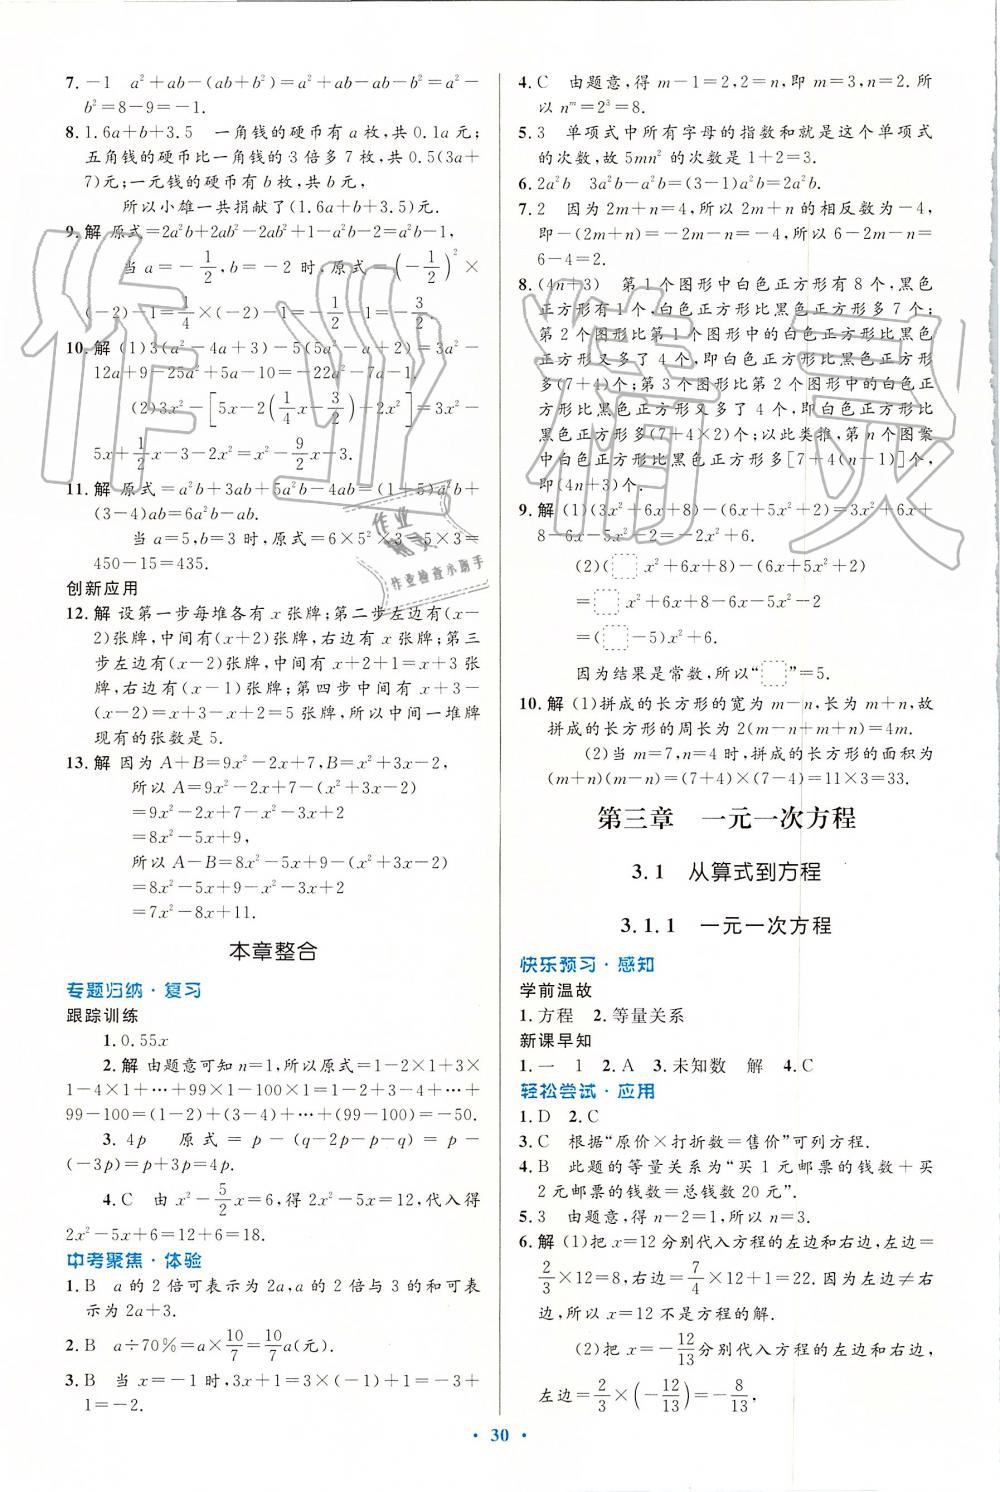 7. −1　a²+ab−(ab+b²)=a²+ab−ab−b²=a²−
b²=8−9=−1.
8. 1.6a+b+3.5　一角钱的硬币有a枚,共0.1a元;
五角钱的硬币比一角钱的3倍多7枚,共0.5(3a+
7)元;一元钱的硬币有b枚,共b元,
所以小雄一共捐献了(1.6a+b+3.5)元.
9. 解 原式=2a²b+2ab²−2ab²+1−a²b−2=a²b−1,
当a=−1/2,b=−2时,原式=(−1/2)²×
(−2)−1=1/4×(−2)−1=−3/2.
10. 解 (1)3(a²−4a+3)−5(5a²−a+2)=3a²−
12a+9−25a²+5a−10=−22a²−7a−1.
(2)3x²−[5x−2(1/4x−3/2)+2x²]=3x²−
5x+1/2x−3−2x²=x²−9/2x−3.
11. 解 原式=a²b+3ab+5a²b−4ab=(1+5)a²b+
(3−4)ab=6a²b−ab.
当a=5,b=3时,原式=6×5²×3−5×3=
450−15=435.
创新应用
12. 解 设第一步每堆各有x张牌;第二步左边有(x−
2)张牌,中间有(x+2)张牌,右边有x张牌;第三
步左边有(x−2)张牌,中间有x+3张牌,右边有
(x−1)张牌;第四步中间有x+3−
(x−2)=x+3−x+2=5张牌,所以中间一堆牌
现有的张数是5.
13. 解 因为A+B=9x²−2x+7,B=x²+3x−2,
所以A=9x²−2x+7−(x²+3x−2)
=9x²−2x+7−x²−3x+2
=8x²−5x+9,
所以A−B=8x²−5x+9−(x²+3x−2)
=8x²−5x+9−x²−3x+2
=7x²−8x+11.
本章整合
专题归纳·复习
跟踪训练
1. 0.55x
2. 解 由题意可知n=1,所以原式=1−2×1+3×
1−4×1+…+99×1−100×1=1−2+3−4+…+
99−100=(1−2)+(3−4)+…+(99−100)=−50.
3. 4p　原式=p−(q−2p−p−q)=p−
(−3p)=p+3p=4p.
4. C　由x²−5/2x=6,得2x²−5x=12,代入得
2x²−5x+6=12+6=18.
中考聚焦·体验
1. B　a的2倍可表示为2a,a的2倍与3的和可表
示为2a+3.
2. B　a÷70%=a×10/7=10/7a(元).
3. B　当x=−1时,3x+1=3×(−1)+1=−3+
1=−2.
4. C　由题意,得m−1=2,2=n,即m=3,n=2.所
以nᵐ=2³=8.
5. 3　单项式中所有字母的指数和就是这个单项式
的次数,故5mn²的次数是1+2=3.
6. 2a²b　3a²b−a²b=(3−1)a²b=2a²b.
7. 2　因为2m+n=4,所以2m+n的相反数为−4,
即−(2m+n)=−2m−n=−4,所以6−2m−n=
6−4=2.
8. (4n+3)　第1个图形中白色正方形有8个,黑色
正方形有1个,白色正方形比黑色正方形多7个;
第2个图形比第1个图形中的白色正方形比黑色
正方形又多了4个,即白色正方形比黑色正方形
多(7+4)个;第3个图形比第2个图形中的白色正
方形比黑色正方形又多了4个,即白色正方形比
黑色正方形多(7+4×2)个;以此类推,第n个图案
中白色正方形比黑色正方形多[7+4(n−1)]个,
即(4n+3)个.
9. 解 (1)(3x²+6x+8)−(6x+5x²+2)=3x²+6x+
8−6x−5x²−2=−2x²+6.
(2)(□x²+6x+8)−(6x+5x²+2)
=□x²+6x+8−6x−5x²−2
=(□−5)x²+6.
因为结果是常数,所以“□”=5.
10. 解 (1)拼成的长方形的宽为m−n,长为m+n,故
拼成的长方形的周长为2(m−n+m+n)=4m.
(2)当m=7,n=4时,拼成的长方形的面积为
(m+n)(m−n)=(7+4)×(7−4)=11×3=33.
第三章　一元一次方程
3.1　从算式到方程
3.1.1　一元一次方程
快乐预习·感知
学前温故
1. 方程　2. 等量关系
新课早知
1. 一　1　2. A　3. 未知数　解　4. C
轻松尝试·应用
1. D　2. C
3. C　根据“原价×打折数=售价”可列方程.
4. B　此题的等量关系为“买1元邮票的钱数+买
2元邮票的钱数=总钱数20元”.
5. 3　由题意,得n−2=1,所以n=3.
6. 解 (1)把x=12分别代入方程的左边和右边,左边=
2/3×12=8,右边=7/4×12+1=22.因为左边≠右
边,所以x=12不是方程的解.
(2)把x=−12/13分别代入方程的左边和右边,
左边=2/3×(−12/13)=−8/13,
·30·
作业精灵
作业
精灵
作业检查小助手